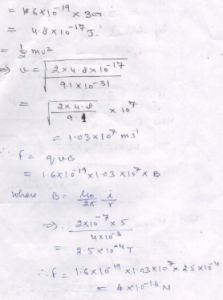 = 1.6×10⁻¹⁹ × 300
= 4.8×10⁻¹⁷ J.
= ½ mv²
⇒ v = √(2×4.8×10⁻¹⁷ / 9.1×10⁻³¹)
= √(2×4.8 / 9.1) × 10⁷
= 1.03×10⁷ ms⁻¹
f = qvB
= 1.6×10⁻¹⁹ × 1.03×10⁷ × B
where B = μ₀/2π i/r
⇒ 2×10⁻⁷ × 5 / 4×10⁻³
= 2.5×10⁻⁴ T
∴ f = 1.6×10⁻¹⁹ × 1.03×10⁷ × 2.5×10⁻⁴
= 4×10⁻¹⁶ N